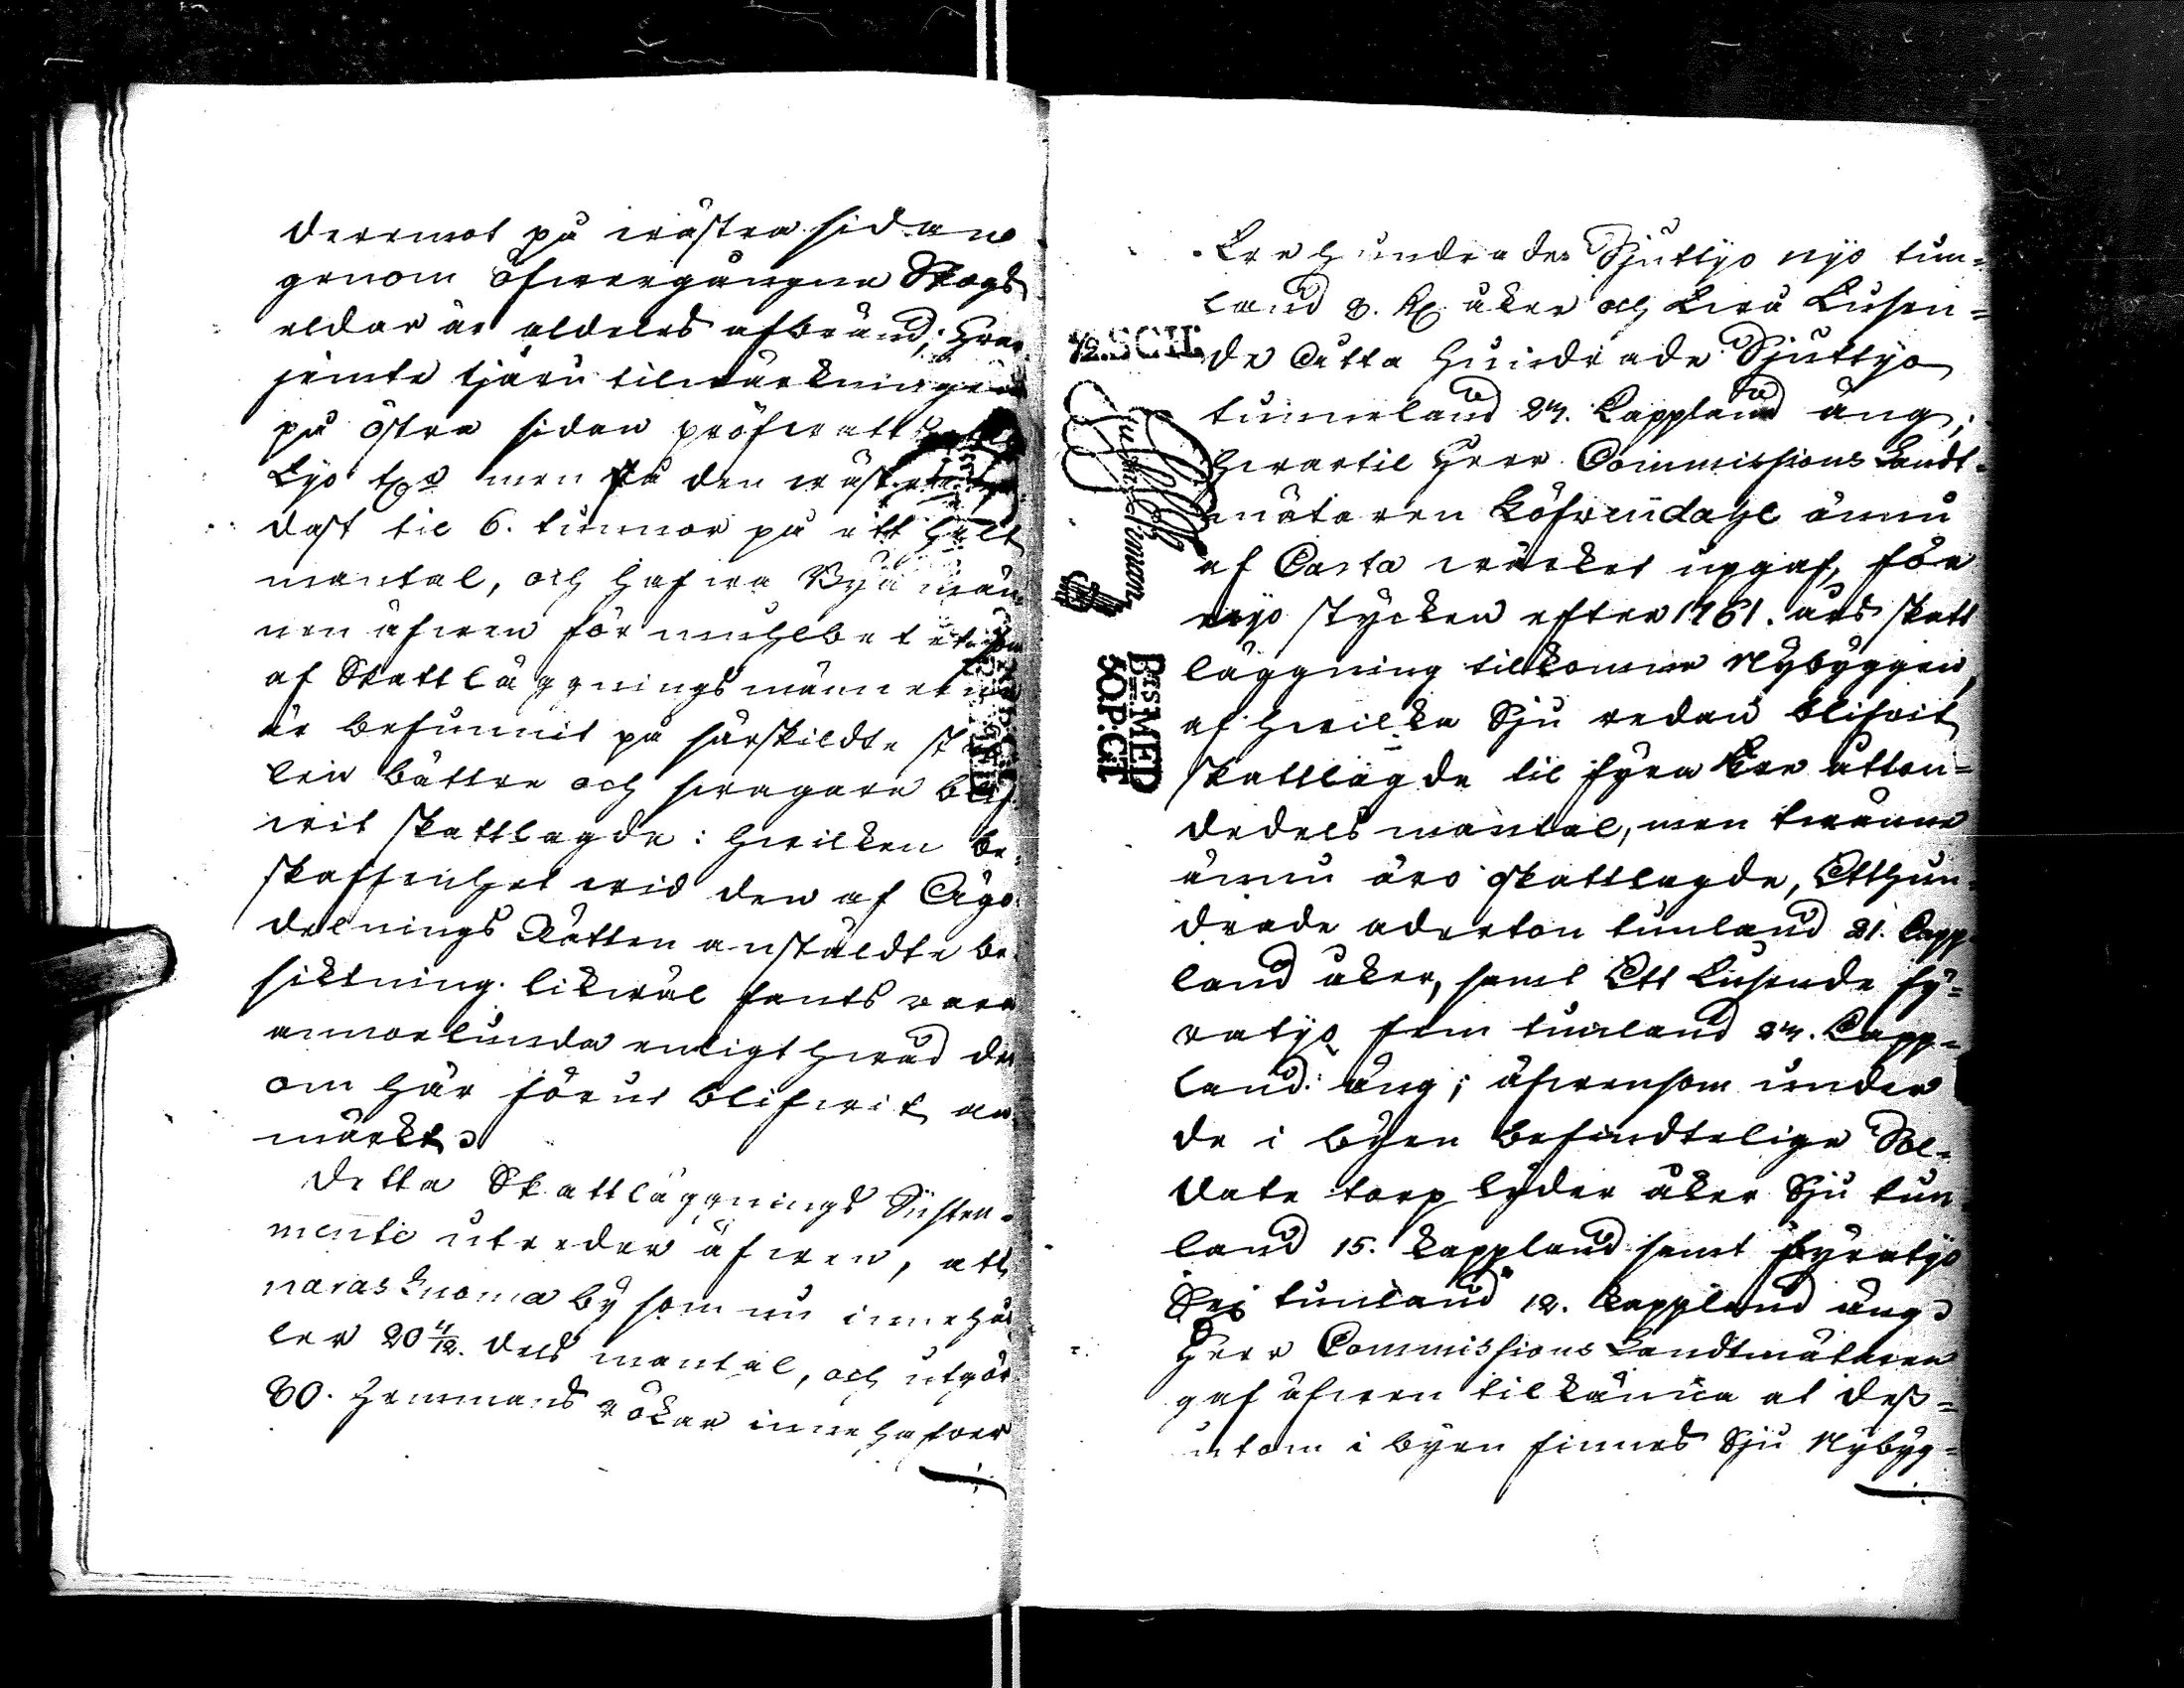 deremot på wästra sidan
genom öfwergångne Skogs
eldar är aldeles afbränd; Hwar
jemte tjäru tilwärkningen
på östra sidan pröfwatt
tjo men på den wästra
dast til 6. tunnor på ett helt
mantal, och hafwa Byamän
nen äfwen för muhlbetet som
af Skattläggningsmännerna
är befunnit på särskildte stäl
len bättre och swagare blif
wit skattlagde: hwilken be
skaffenhet wid den af Ägo
delnings Rätten anstäldte be
siktning likwäl fants vara
annorlunda enligt hwad der
om här förut blifwit an
märkt.
Detta Skattläggnings Instru-
mente utreder äfwen, att
naraskuoma by som nu innehål
ler 20 11/12. dels mantal, och utgör
30. Hemmans rökar innehafwer
Tre hundrade Sjuttijo nijo tun=
land 3. k. åker och Två Tusen=
de Åtta hundrade Sjuttijo
tunneland 24. Kappland äng;
hwartil Herr Commissions Landt-
mätaren Löfwendahl ännu
af Carta wärket upgaf, för
nijo stycken efter 1761. års skatt
läggning tilkomne Nybyggen,
af hwilka Sju redan blifwit
skattlagde til fyra tre åtton=
dedels mantal, men twänne
ännu äro oskattlagde, Etthun
drade aderton tunland 21. Kapp
land åker, samt Ett Tusende fy=
ratijo fem tunland 24. Kapp=
land äng; äfwensom under
de i byen befindtelige Sol=
date torp lyder åker Sju tun
land 15. kappland samt fyratijo
Sex tunland 12. kappland äng.
Herr Commissions Landtmätaren
gaf äfwen tilkänna at dess=
utom i byen finnes Sju Nybyg=